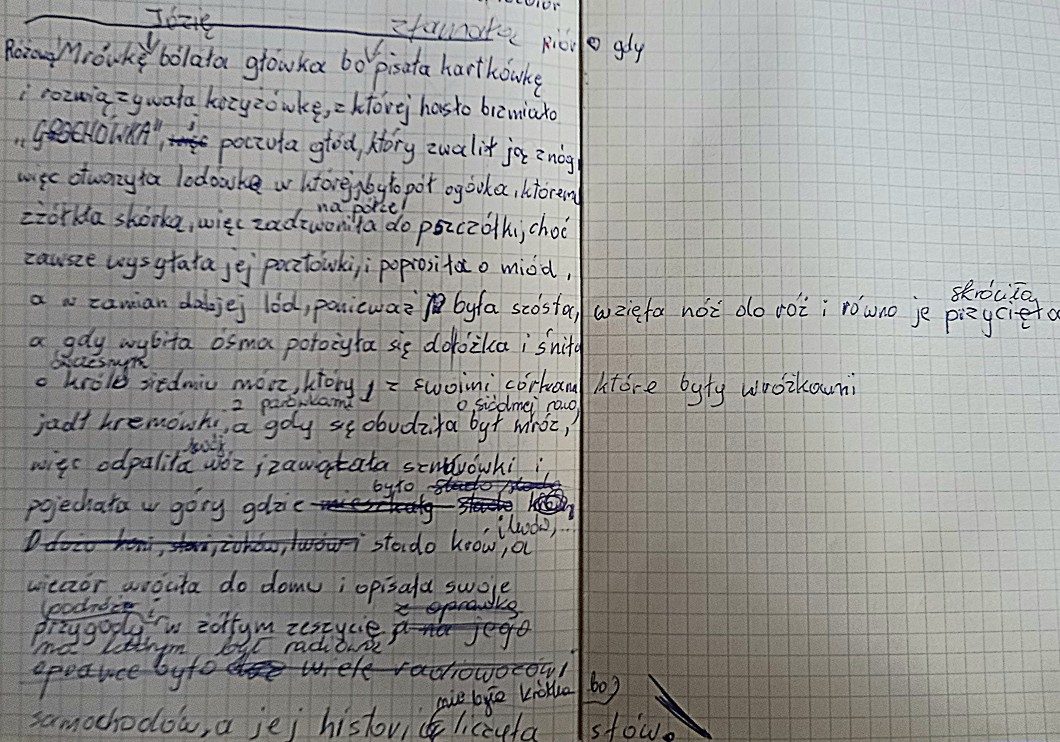 Józię złamaną
Różową Mrówkę bólała główka bo pisała kartkówkę gdy
i rozwiązywała kozyżówkę, z której hasło brzmiało
„GROCHÓWKA", i poczuła głód, który zwalił ją z nóg,
więc otworzyła lodówkę w której było pół ogórka, którem
na półce!
zżółkła skórka, więc zadzwoniła do pszczółki, choć
zawsze wysyłała jej pocztówki, i poprosiła o miód,
skróciła
a w zamian da jej lód, ponieważ była szósta, wzięła nóż do róż i równo je przycięła
a gdy wybiła ósma położyła się do łóżka i śniła
o królu siedmiu mórz, który z swoimi córkam które były wróżkami
z parówkami o siódmej rano,
jadł kremówki, a gdy się obudziła był mróz,
swój
więc odpaliła wóz, zawiązała sznurówki i
było
pojechała w góry gdzie mieszkały stado
i lwów,...
stado krów, a
wieczór wróciła do domu i opisała swoje
podróże i z oprawką
przygody w żółtym zeszycie, a na jego
na którym był radiowóz,
oprawce było wiele radiowozów!
nie była krótka bo
samochodów, a jej histori liczyła słów.